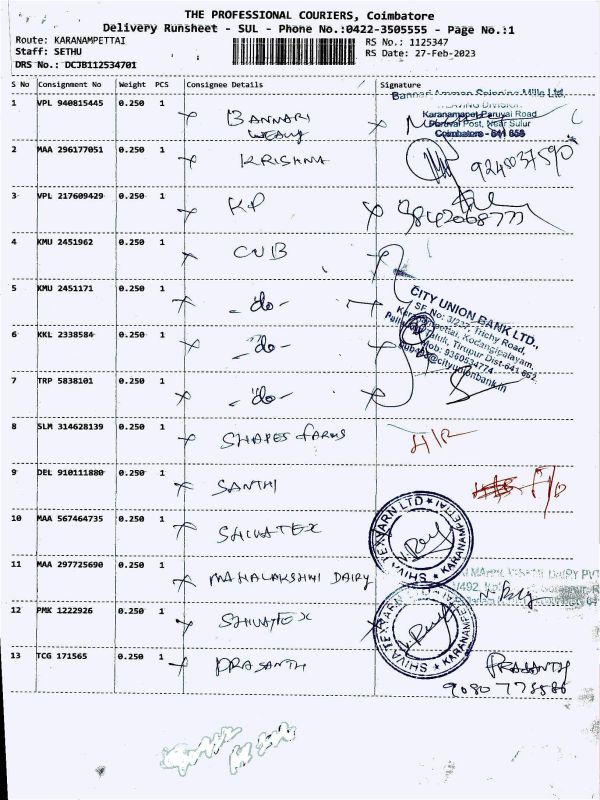 THE PROFESSIONAL COURIERS, Coimbatore
Delivery Runsheet - SUL - Phone No.:0422-3505555 - Page No.:1
Route: KARANAMPETTAI
Staff: SETHU
DRS No.: DCJB112534701
RS No.: 1125347
RS Date: 27-Feb-2023
S No Consignment No Weight PCS Consignee Details Signature
1 VPL 940815445 0.250 1 BANNARI
Bannari Amman Spinning Mills Ltd.
WEAVING DIVISION
Karanampet Paruvai Road
Paruvai Post, Near Sulur
Coimbatore - 641 658
2 MAA 296177051 0.250 1 KRISHNA 9248037590
3 VPL 217609429 0.250 1 KP 9842068777
4 KMU 2451962 0.250 1 CUB
5 KMU 2451171 0.250 1 - do -
CITY UNION BANK LTD.,
SF. No: 3/227, Trichy Road,
Karanampettai, Kodangipalayam,
Palladam Taluk, Tirupur Dist-641 662.
Mob: 9360534774
@cityunionbank.in
6 KKL 2338584 0.250 1 - do -
7 TRP 5838101 0.250 1 - do -
8 SLM 314628139 0.250 1 SHAPES farms H/R
9 DEL 910111880 0.250 1 SANTHI
10 MAA 567464735 0.250 1 SHIVATEX
SHIVA TEXYARN LTD ★ KARANAMPETTAI ★
11 MAA 297725690 0.250 1 MAHALAKSHMI DAIRY
DAIRY PVT
12 PMK 1222926 0.250 1 SHIVATEX
SHIVA TEXYARN LTD ★ KARANAMPETTAI ★
13 TCG 171565 0.250 1 PRASANTH PRASANTH
9080 778586